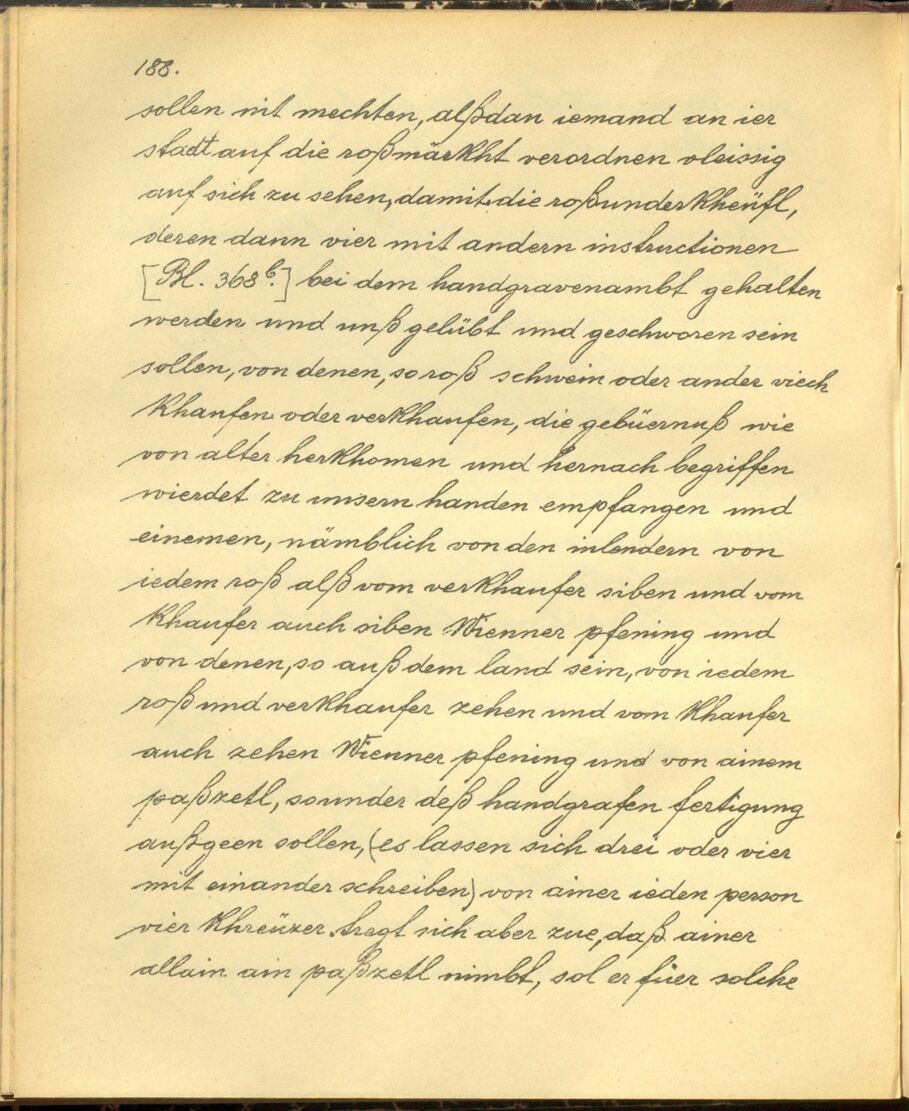 188.
sollen nit mechten, alßdan iemand an ier
stadt auf die roßmärkht verordnen vleissig
auf sich zu sehen, damit die roßunderkheüfl,
deren dann vier mit andern instructionen
[Bl. 368b.] bei dem handgravenambt gehalten
werden und unß gelübt und geschworen sein
sollen, von denen, so roß schwein oder ander viech
khaufen oder verkhaufen, die gebüernuß wie
von alter herkhomen und hernach begriffen
wierdet zu unsern handen empfangen und
einemen, nämblich von den inlendern von
iedem roß alß vom verkhaufer siben und vom
khaufer auch siben Wienner pfening und
von denen, so auß dem land sein, von iedem
roß und verkhaufer zehen und vom khaufer
auch zehen Wienner pfening und von ainem
paßzetl, so under deß handgrafen fertigung
außgeen sollen, (es lassen sich drei oder vier
mit einander schreiben) von ainer ieden person
vier khreüzer. tregt sich aber zue, daß ainer
allain ain paßzetl nimbt, sol er füer solche